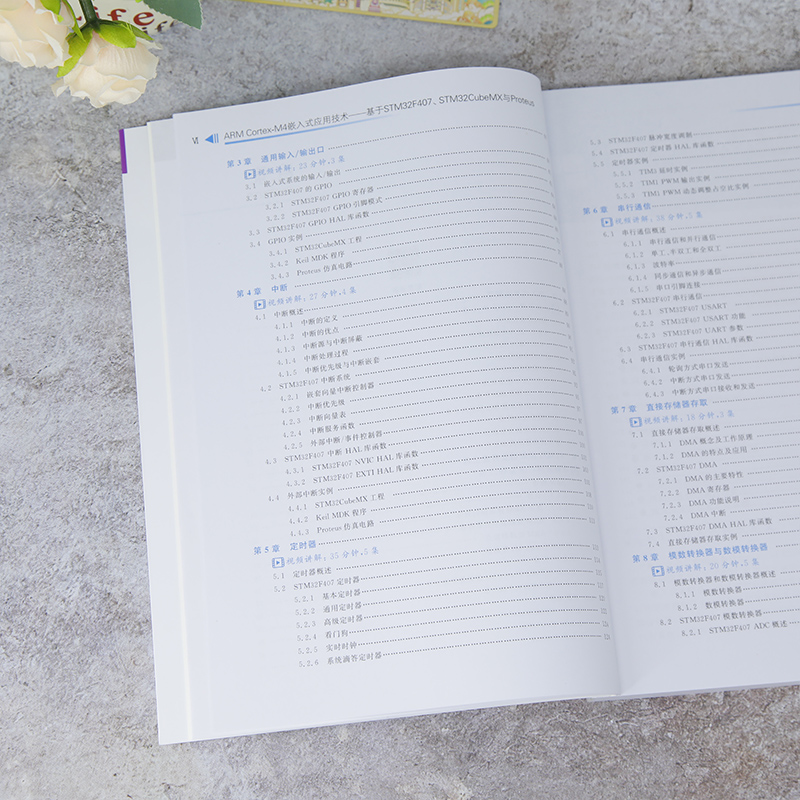 Life
Ⅵ ARM Cortex-M4嵌入式应用技术——基于STM32F407、STM32CubeMX与Proteus
第3章 通用输入/输出口
视频讲解:23分钟,3集
3.1 嵌入式系统的输入/输出
3.2 STM32F407的GPIO
3.2.1 STM32F407 GPIO寄存器
3.2.2 STM32F407 GPIO引脚模式
3.3 STM32F407 GPIO HAL库函数
3.4 GPIO实例
3.4.1 STM32CubeMX工程
3.4.2 Keil MDK程序
3.4.3 Proteus仿真电路
第4章 中断
视频讲解:27分钟,4集
4.1 中断概述
4.1.1 中断的定义
4.1.2 中断的优点
4.1.3 中断源与中断屏蔽
4.1.4 中断处理过程
4.1.5 中断优先级与中断嵌套
4.2 STM32F407中断系统
4.2.1 嵌套向量中断控制器
4.2.2 中断优先级
4.2.3 中断向量表
4.2.4 中断服务函数
4.2.5 外部中断/事件控制器
4.3 STM32F407中断HAL库函数
4.3.1 STM32F407 NVIC HAL库函数
4.3.2 STM32F407 EXTI HAL库函数
4.4 外部中断实例
4.4.1 STM32CubeMX工程
4.4.2 Keil MDK程序
4.4.3 Proteus仿真电路
第5章 定时器
视频讲解:35分钟,5集
5.1 定时器概述
5.2 STM32F407定时器
5.2.1 基本定时器
5.2.2 通用定时器
5.2.3 高级定时器
5.2.4 看门狗
5.2.5 实时时钟
5.2.6 系统滴答定时器
5.3 STM32F407脉冲宽度调制
5.4 STM32F407定时器HAL库函数
5.5 定时器实例
5.5.1 TIM1延时实例
5.5.2 TIM1 PWM输出实例
5.5.3 TIM1 PWM动态调整占空比实例
第6章 串行通信
视频讲解:26分钟,5集
6.1 串行通信概述
6.1.1 串行通信和并行通信
6.1.2 单工、半双工和全双工
6.1.3 波特率
6.1.4 同步通信和异步通信
6.1.5 串口引脚连接
6.2 STM32F407串行通信
6.2.1 STM32F407 USART
6.2.2 STM32F407 USART功能
6.2.3 STM32F407 UART参数
6.3 STM32F407串行通信HAL库函数
6.4 串行通信实例
6.4.1 轮询方式串口发送
6.4.2 中断方式串口发送
6.4.3 中断方式串口接收和发送
第7章 直接存储器存取
视频讲解:18分钟,3集
7.1 直接存储器存取概述
7.1.1 DMA概念及工作原理
7.1.2 DMA的特点及应用
7.2 STM32F407 DMA
7.2.1 DMA的主要特性
7.2.2 DMA寄存器
7.2.3 DMA功能说明
7.2.4 DMA中断
7.3 STM32F407 DMA HAL库函数
7.4 直接存储器存取实例
第8章 模数转换器与数模转换器
视频讲解:20分钟,5集
8.1 模数转换器和数模转换器概述
8.1.1 模数转换器
8.1.2 数模转换器
8.2 STM32F407模数转换器
8.2.1 STM32F407 ADC概述